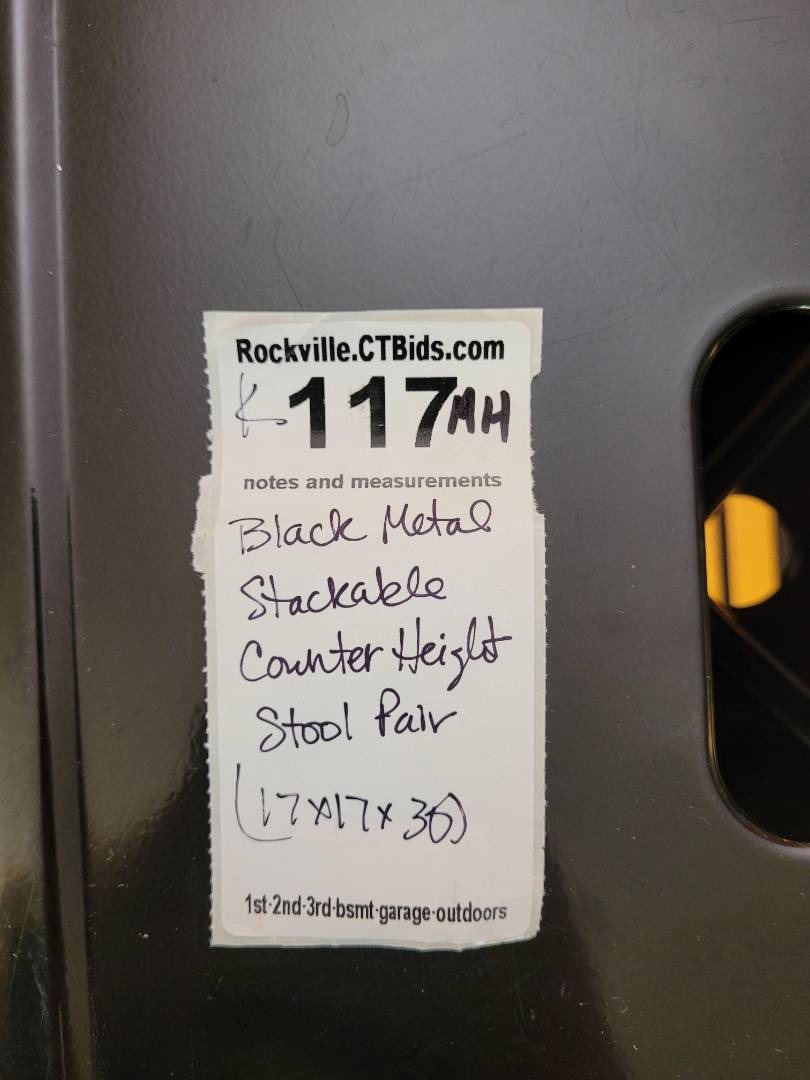 Rockville.CTBids.com
K 117 MH
notes and measurements
Black Metal
Stackable
Counter Height
Stool Pair
(17x17x30)
1st·2nd·3rd·bsmt·garage·outdoors